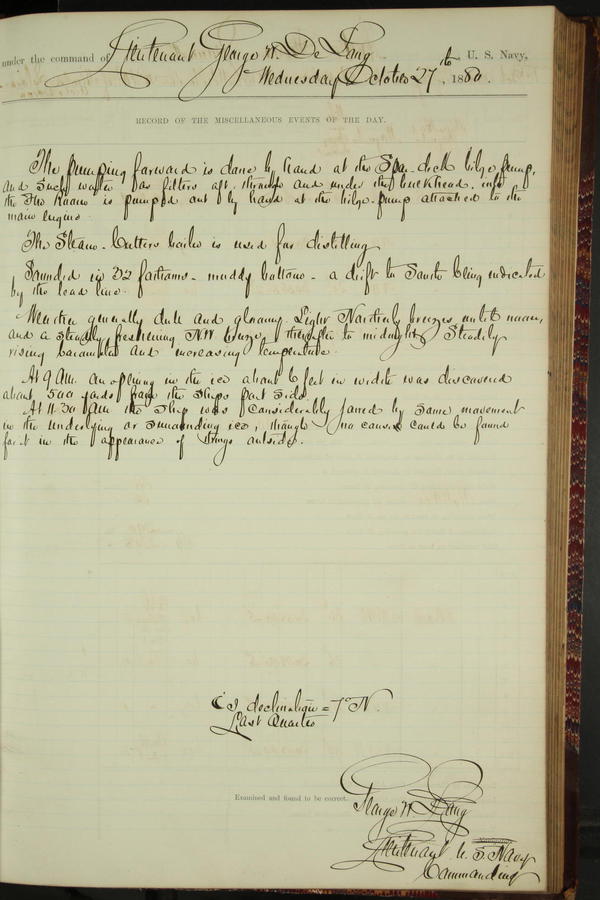 under the command of Lieutenant George W. De Long U. S. Navy,
Wednesday October 27th, 1880.
RECORD OF THE MISCELLANEOUS EVENTS OF THE DAY.
The pumping forward is done by hand at the Spar-deck bilge pump,
and such water as filters aft, through and under the bulkhead, into
the Fire Room is pumped out by hand at the bilge-pump attached to the
main engine.
The Steam-Cutters boiler is used for distilling
Sounded in 32 fathoms - muddy bottom - a drift to South being indicated
by the lead line.
Weather generally dull and gloomy. Light Northerly breezes until noon,
and a steadily freshening NW breeze thereafter to midnight. Steadily
rising barometer and increasing temperature.
At 9 AM. an opening in the ice about 6 feet in width was discovered
about 500 yards from the Ships port side
At 11.30 AM the Ship was considerably jarred by some movement
in the underlying or surrounding ice, though no cause could be found
for it in the appearance of things outside.
☾s declination = 7° N.
Last Quarter
Examined and found to be correct.
George W. De Long
Lieutenant U. S. Navy
Commanding